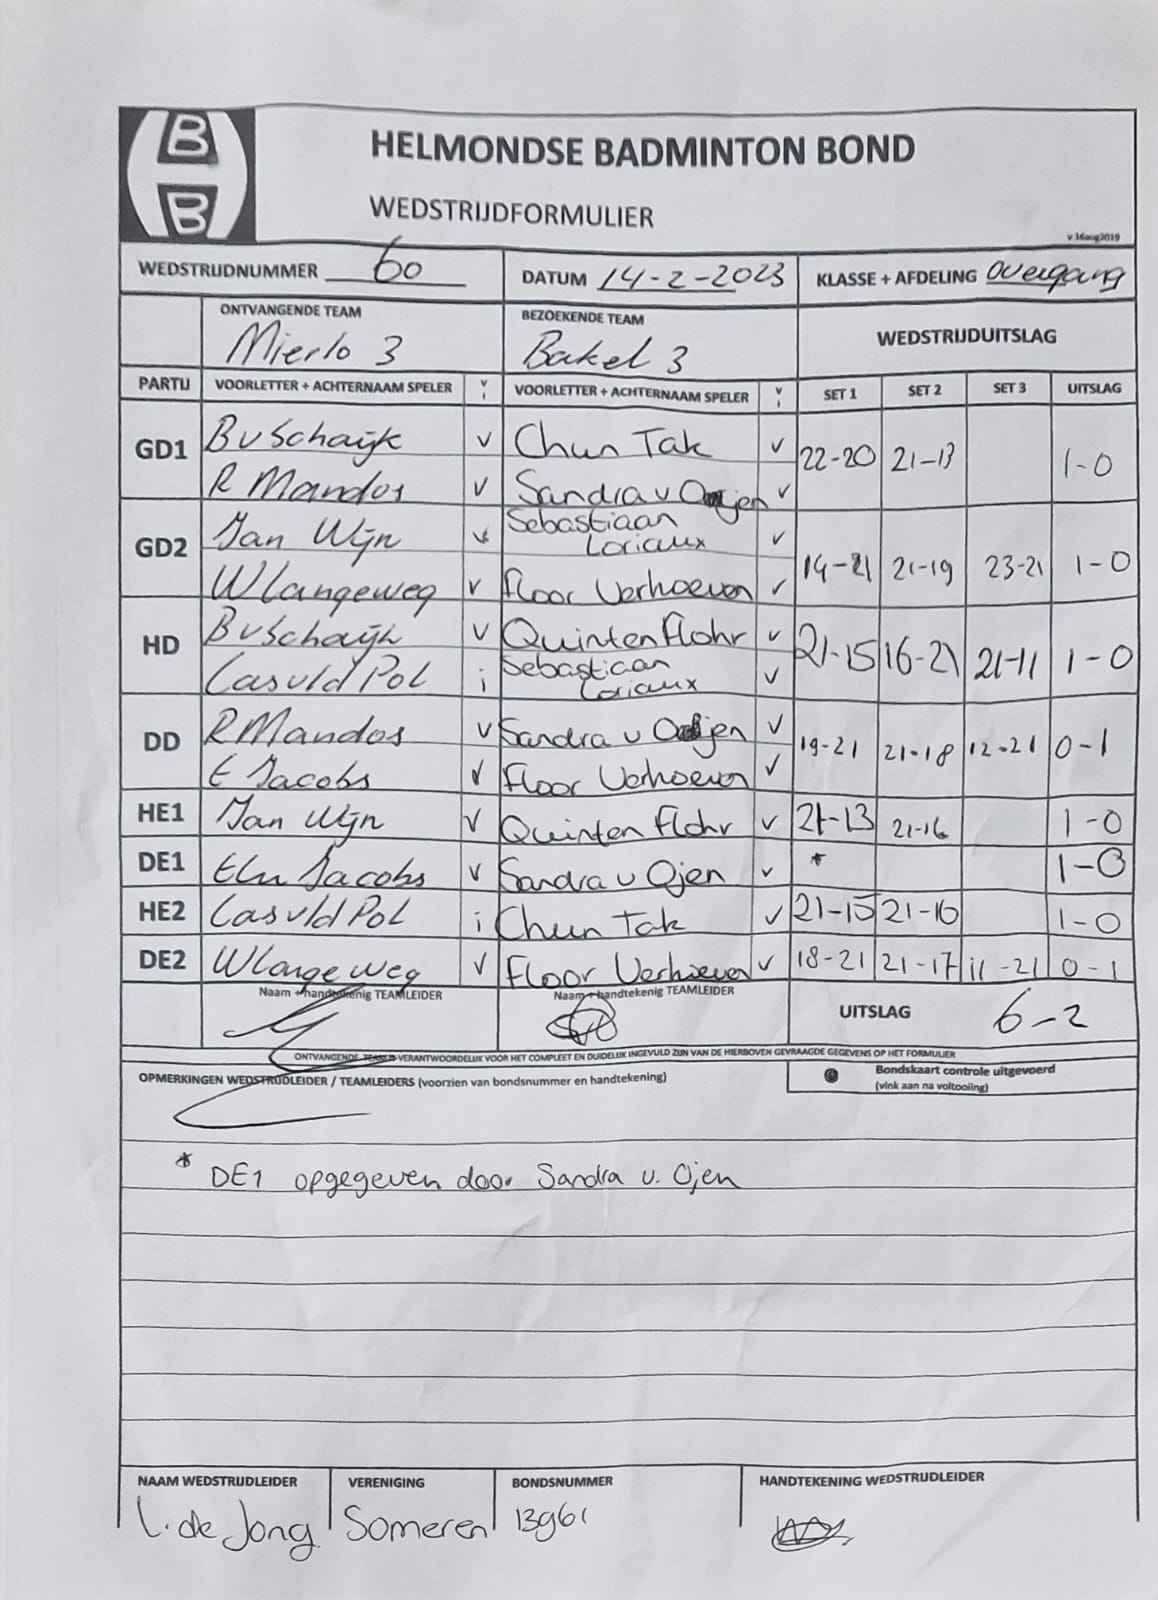 B
B
HELMONDSE BADMINTON BOND
WEDSTRIJDFORMULIER
v.16aug2019
WEDSTRIJDNUMMER 60 DATUM 14-2-2023 KLASSE + AFDELING overgang
ONTVANGENDE TEAM BEZOEKENDE TEAM WEDSTRIJDUITSLAG
Mierlo 3 Bakel 3
PARTIJ VOORLETTER + ACHTERNAAM SPELER V I VOORLETTER + ACHTERNAAM SPELER V I SET 1 SET 2 SET 3 UITSLAG
GD1 B v Schaijk v Chun Tak v 22-20 21-13 1-0
R Mandos v Sandra v Ojen v
GD2 Jan Wijn v Sebastiaan Loriaux v 14-21 21-19 23-21 1-0
W Langeweg v Floor Verhoeven v
HD B v Schaijk v Quinten Flohr v 21-15 16-21 21-11 1-0
Cas vld Pol i Sebastiaan Loriaux v
DD R Mandos v Sandra v Ojen v 19-21 21-18 12-21 0-1
E Jacobs v Floor Verhoeven v
HE1 Jan Wijn v Quinten Flohr v 21-13 21-16 1-0
DE1 Jacobs v Sandra v Ojen v * 1-0
HE2 Cas vld Pol i Chun Tak v 21-15 21-16 1-0
DE2 W Langeweg v Floor Verhoeven v 18-21 21-17 11-21 0-1
Naam + handtekenig TEAMLEIDER Naam + handtekenig TEAMLEIDER UITSLAG 6-2
ONTVANGENDE TEAM IS VERANTWOORDELIJK VOOR HET COMPLEET EN DUIDELIJK INGEVULD ZIJN VAN DE HIERBOVEN GEVRAAGDE GEGEVENS OP HET FORMULIER
OPMERKINGEN WEDSTRIJDLEIDER / TEAMLEIDERS (voorzien van bondsnummer en handtekening) Bondskaart controle uitgevoerd
(vink aan na voltooiing)
* DE1 opgegeven door Sandra v. Ojen
NAAM WEDSTRIJDLEIDER VERENIGING BONDSNUMMER HANDTEKENING WEDSTRIJDLEIDER
L. de Jong Someren 13961